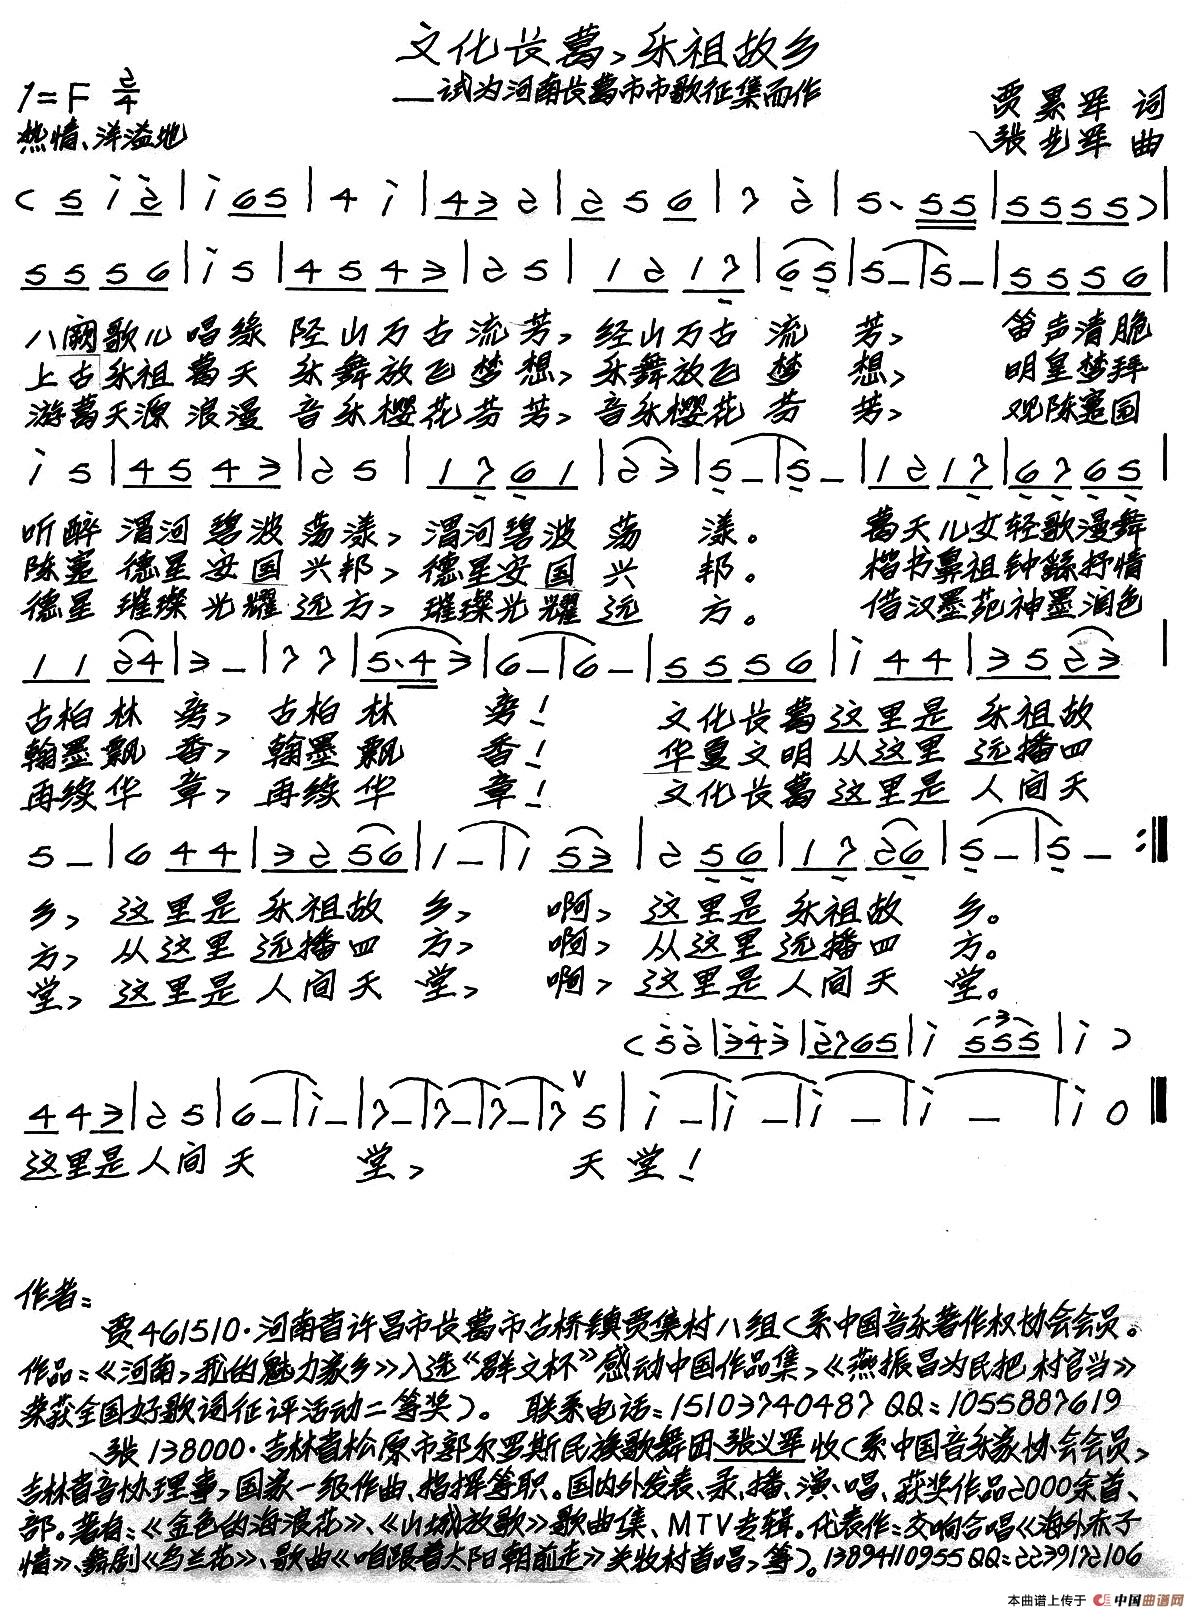 文化长葛，乐祖故乡
——试为河南长葛市市歌征集而作
1=F 2/4
热情、洋溢地
贾累军 词
张艺军 曲
( 5 i 2 | i 65 | 4 i | 43 2 | 2 5 6 | 7 2 | 5· 55 | 5555 ) |
55 56 | i 5 | 45 43 | 2 5 | 12 17 | 6 5 | 5 – | 5 – | 55 56 |
八阕歌儿唱缘 陉山万古流芳，经山万古流芳， 笛声清脆
上古乐祖葛天 乐舞放飞梦想，乐舞放飞梦想， 明皇梦拜
游葛天源浪漫 音乐樱花芬芳，音乐樱花芬芳， 观陈寔园
i 5 | 45 43 | 2 5 | 17 61 | 2 3 | 5 – | 5 – | 12 17 | 67 65 |
听醉 渭河碧波荡漾，渭河碧波荡漾。 葛天儿女轻歌漫舞
陈寔 德星安国兴邦，德星安国兴邦。 楷书鼻祖钟繇抒情
德星 璀璨光耀远方，璀璨光耀远方。 借汉墨苑神墨润色
11 24 | 3 – | 7 7 | 5·4 3 | 6 – | 6 – | 55 56 | i 44 | 35 23 |
古柏林旁，古柏林旁！ 文化长葛这里是乐祖故
翰墨飘香，翰墨飘香！ 华夏文明从这里远播四
再续华章，再续华章！ 文化长葛这里是人间天
5 – | 6 44 | 32 56 | 1 – | 1 53 | 2 56 | 17 26 | 5 – | 5 – :‖
乡，这里是乐祖故乡， 啊，这里是乐祖故乡。
方，从这里远播四方， 啊，从这里远播四方。
堂，这里是人间天堂， 啊，这里是人间天堂。
( 52 | 343 | 2765 | i 555 | i )
44 3 | 2 5 | 6 – | i – | 7 – | 7 – | 7 – | 7 5 | i – | i – | i – | i – | i 0 ‖
这里是人间天堂， 天堂！
作者：
贾461510·河南省许昌市长葛市古桥镇贾集村八组（系中国音乐著作权协会会员。
作品：《河南，我的魅力家乡》入选“群文杯”感动中国作品集，《燕振昌为民把村官当》
荣获全国好歌词征评活动二等奖）。 联系电话：15103740487 QQ：1055887619
张138000·吉林省松原市郭尔罗斯民族歌舞团张义军收（系中国音乐家协会会员，
吉林省音协理事，国家一级作曲、指挥等职。国内外发表、录、播、演、唱、获奖作品2000余首、
部。著有：《金色的海浪花》、《山城放歌》歌曲集、MTV专辑。代表作：交响合唱《海外赤子
情》、舞剧《乌兰花》、歌曲《咱跟着太阳朝前走》关牧村首唱，等）。13894110955 QQ：2239172106
本曲谱上传于 中国曲谱网